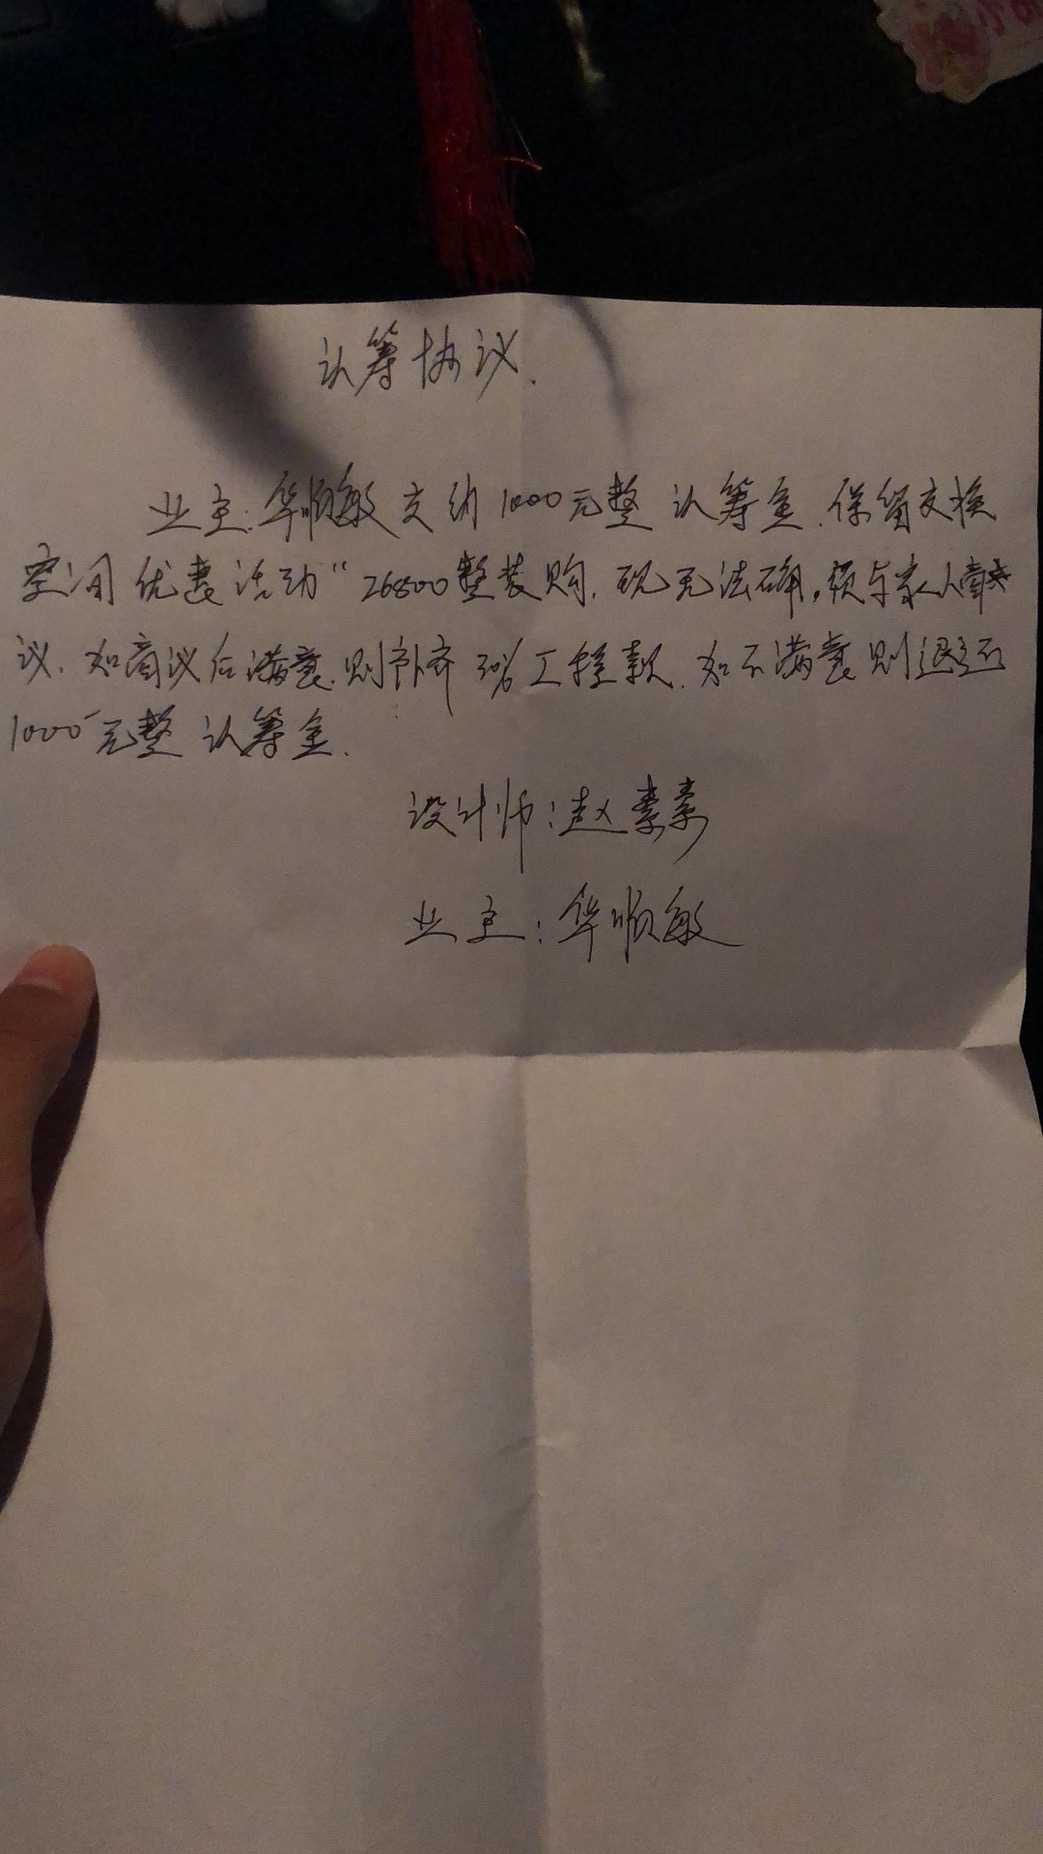 认筹协议.
业主:华顺敏交纳1000元整认筹金.保留交换
空间优惠活动“26800整装购.现无法确,须与家人商
议.如商议后满意.则补齐 工程款.如不满意则退还
1000元整认筹金.
设计师:赵素素
业主:华顺敏